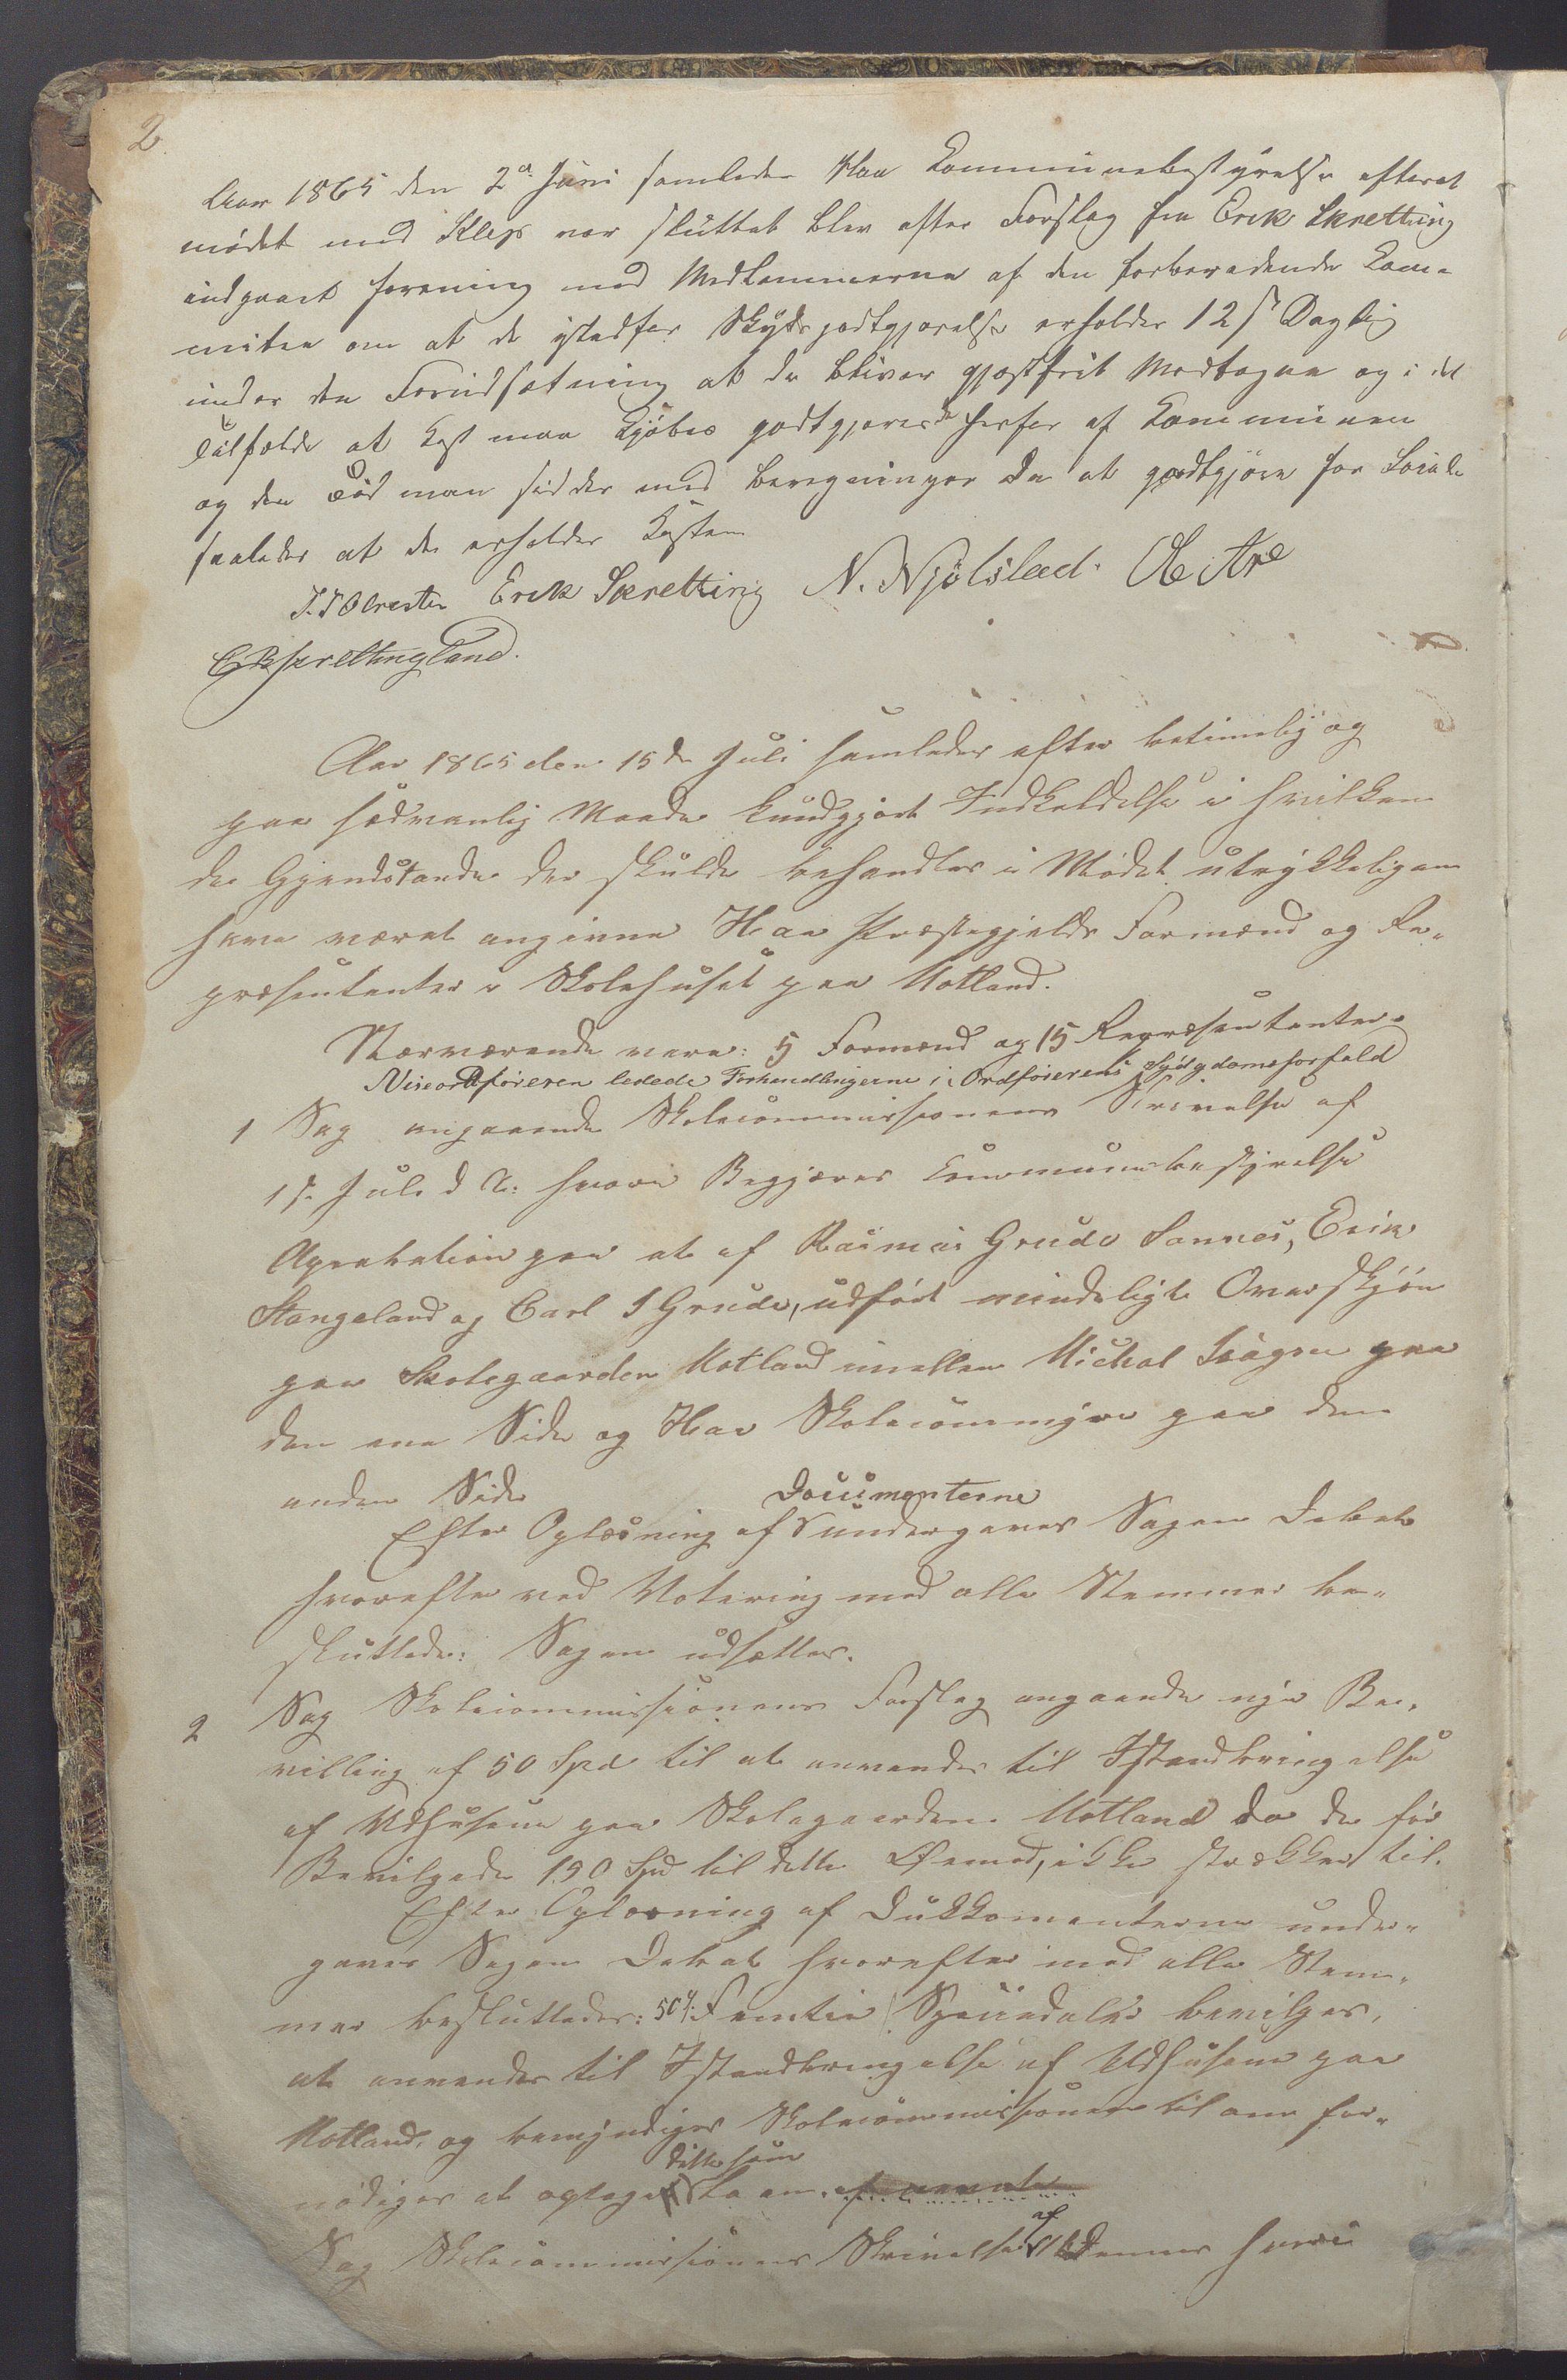 2
Aar 1865 den 2d Juni samledes Haa Kommunebestyrelse efterat
mødet med Klep var sluttet blev efter Forslag fra Erik Skretting
indgaaet forening med Medlemmerne af den forberedende Kom-
mitee om at de istedfor Skydsgodtgjørelse erholder 12 s Daglig
under den Forudsætning at de bliver gjæstfrit Modtagne og i det
Tilfælde at Kost maa Kjøbes godtgjøres de herfor af Kommunen
og den Tid man sidder med beregninger da at godtgjøre for
saaledes at de erholder Kosten
Erik Skretting N. Njölstad.
Aar 1865 den 15de Juli samledes efter betimelig og
paa sædvanlig Maade kundgjort Indkaldelse i hvilken
de Gjendstande der skulde behandles i Mødet utrykkeligen
have været angivne Haa Præstegjelds Formænd og Re-
præsentanter i Skolehuset paa Motland.
Nærværende vare: 5 Formænd og 15 Repræsentanter.
Viseordføreren ledede Forhandlingerne i Ordførerens Sygdomsforfald
1 Sag angaaende Skolecommissionens Skrivelse af
1s Juli d A: hvori Begjæres Communebestyrelse
Aprobation paa at af Rasmus Grude Sannes, Erik
Stangeland og Carl I Grude, udført mindeligt Overskjøn
paa Skolegaarden Motland imellem Michal paa
den ene Side og Haa Skolecommune paa den
anden Side
Efter Oplæsning af Documenterne undergaves Sagen Debat
hvorefter ved Votering med alle Stemmer be-
sluttedes: Sagen udsættes.
2 Sag Skolecommissionens Forslag angaaende nye Be-
villing af 50 Spd til at anvendes til Istandbringelse
af Udhusene paa Skolegaarden Motland da de før
Bevilgede 190 Spd til dette Øiemed, ikke strækker til.
Efter Oplæsning af Dukkomenterne under-
gaves Sagen Debat hvorefter med alle Stem-
mer besluttedes: 50 /: Femtie / Speciedaler bevilges,
at anvendes til Istandbringelse af Udhusene paa
Motland, og bemyndiges Skolecommissionen til om for-
nødiges at optage dette som Laan.
Sag Skolecommissionens Skrivelse af hvori